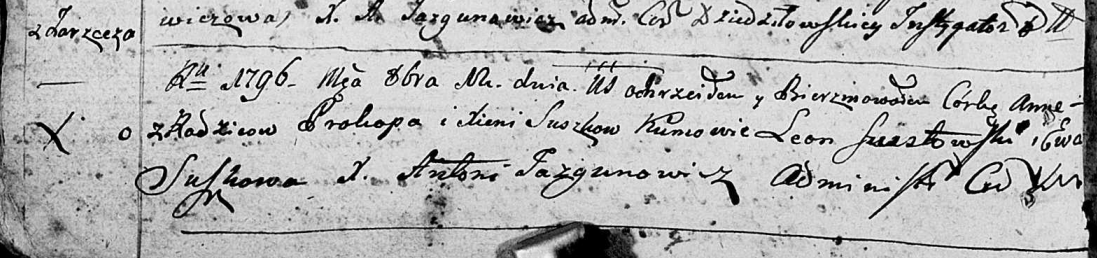 z Zarzecza
wiczowa, X. A. Jazgunowicz adm. Cer Dziedziłowskiey Instygator
Ru 1796. Mca 8bra dnia ochrzciłem y Bierzmowałem Córkę Annę
z Rodzicow Prokopa i Xieni Suszkow Kumowie Leon i Ewa
Suszkowa X. Antoni Jazgunowicz Administ Cer